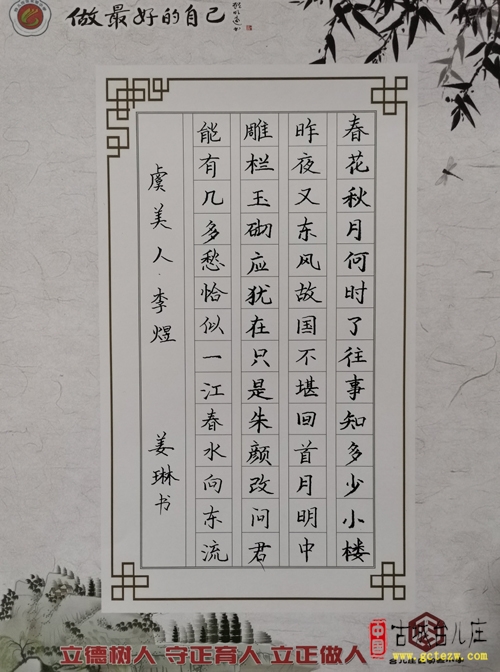 做最好的自己
春花秋月何时了往事知多少小楼
昨夜又东风故国不堪回首月明中
雕栏玉砌应犹在只是朱颜改问君
能有几多愁恰似一江春水向东流
虞美人·李煜
姜琳书
立德树人 守正育人 立正做人
中国
古城台儿庄
www.gctezw.com